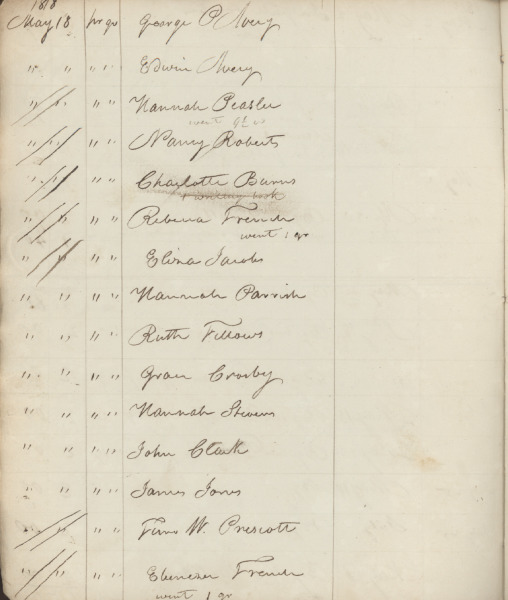 1818
May 18 pr qr George P Avery
" " " " Edwin Avery
" " " " Hannah Peasler
went
" " " " Nancy Roberts
" " " " Charlotte Burns
" " " " Rebecca French
went 1 qr
" " " " Eliza Jacobs
" " " " Hannah Parrish
" " " " Ruth Fellows
" " " " Grace Crosby
" " " " Hannah Stevens
" " " " John Clark
" " " " James Jones
" " " " W. Prescott
" " " " Ebenezer French
went 1 qr